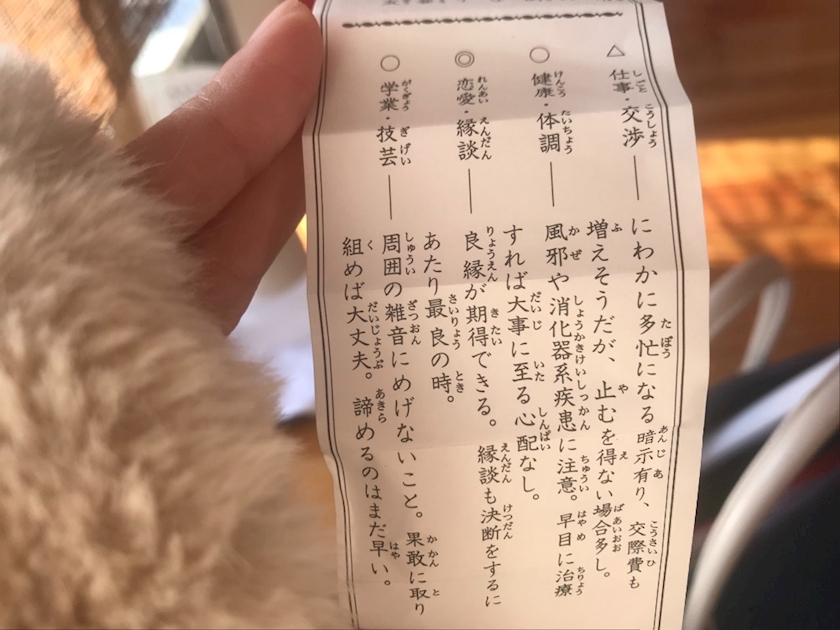 △ 仕事・交渉 ― にわかに多忙になる暗示有り、交際費も
増えそうだが、止むを得ない場合多し。
○ 健康・体調 ― 風邪や消化器系疾患に注意。早目に治療
すれば大事に至る心配なし。
◎ 恋愛・縁談 ― 良縁が期待できる。縁談も決断をするに
あたり最良の時。
○ 学業・技芸 ― 周囲の雑音にめげないこと。果敢に取り
組めば大丈夫。諦めるのはまだ早い。